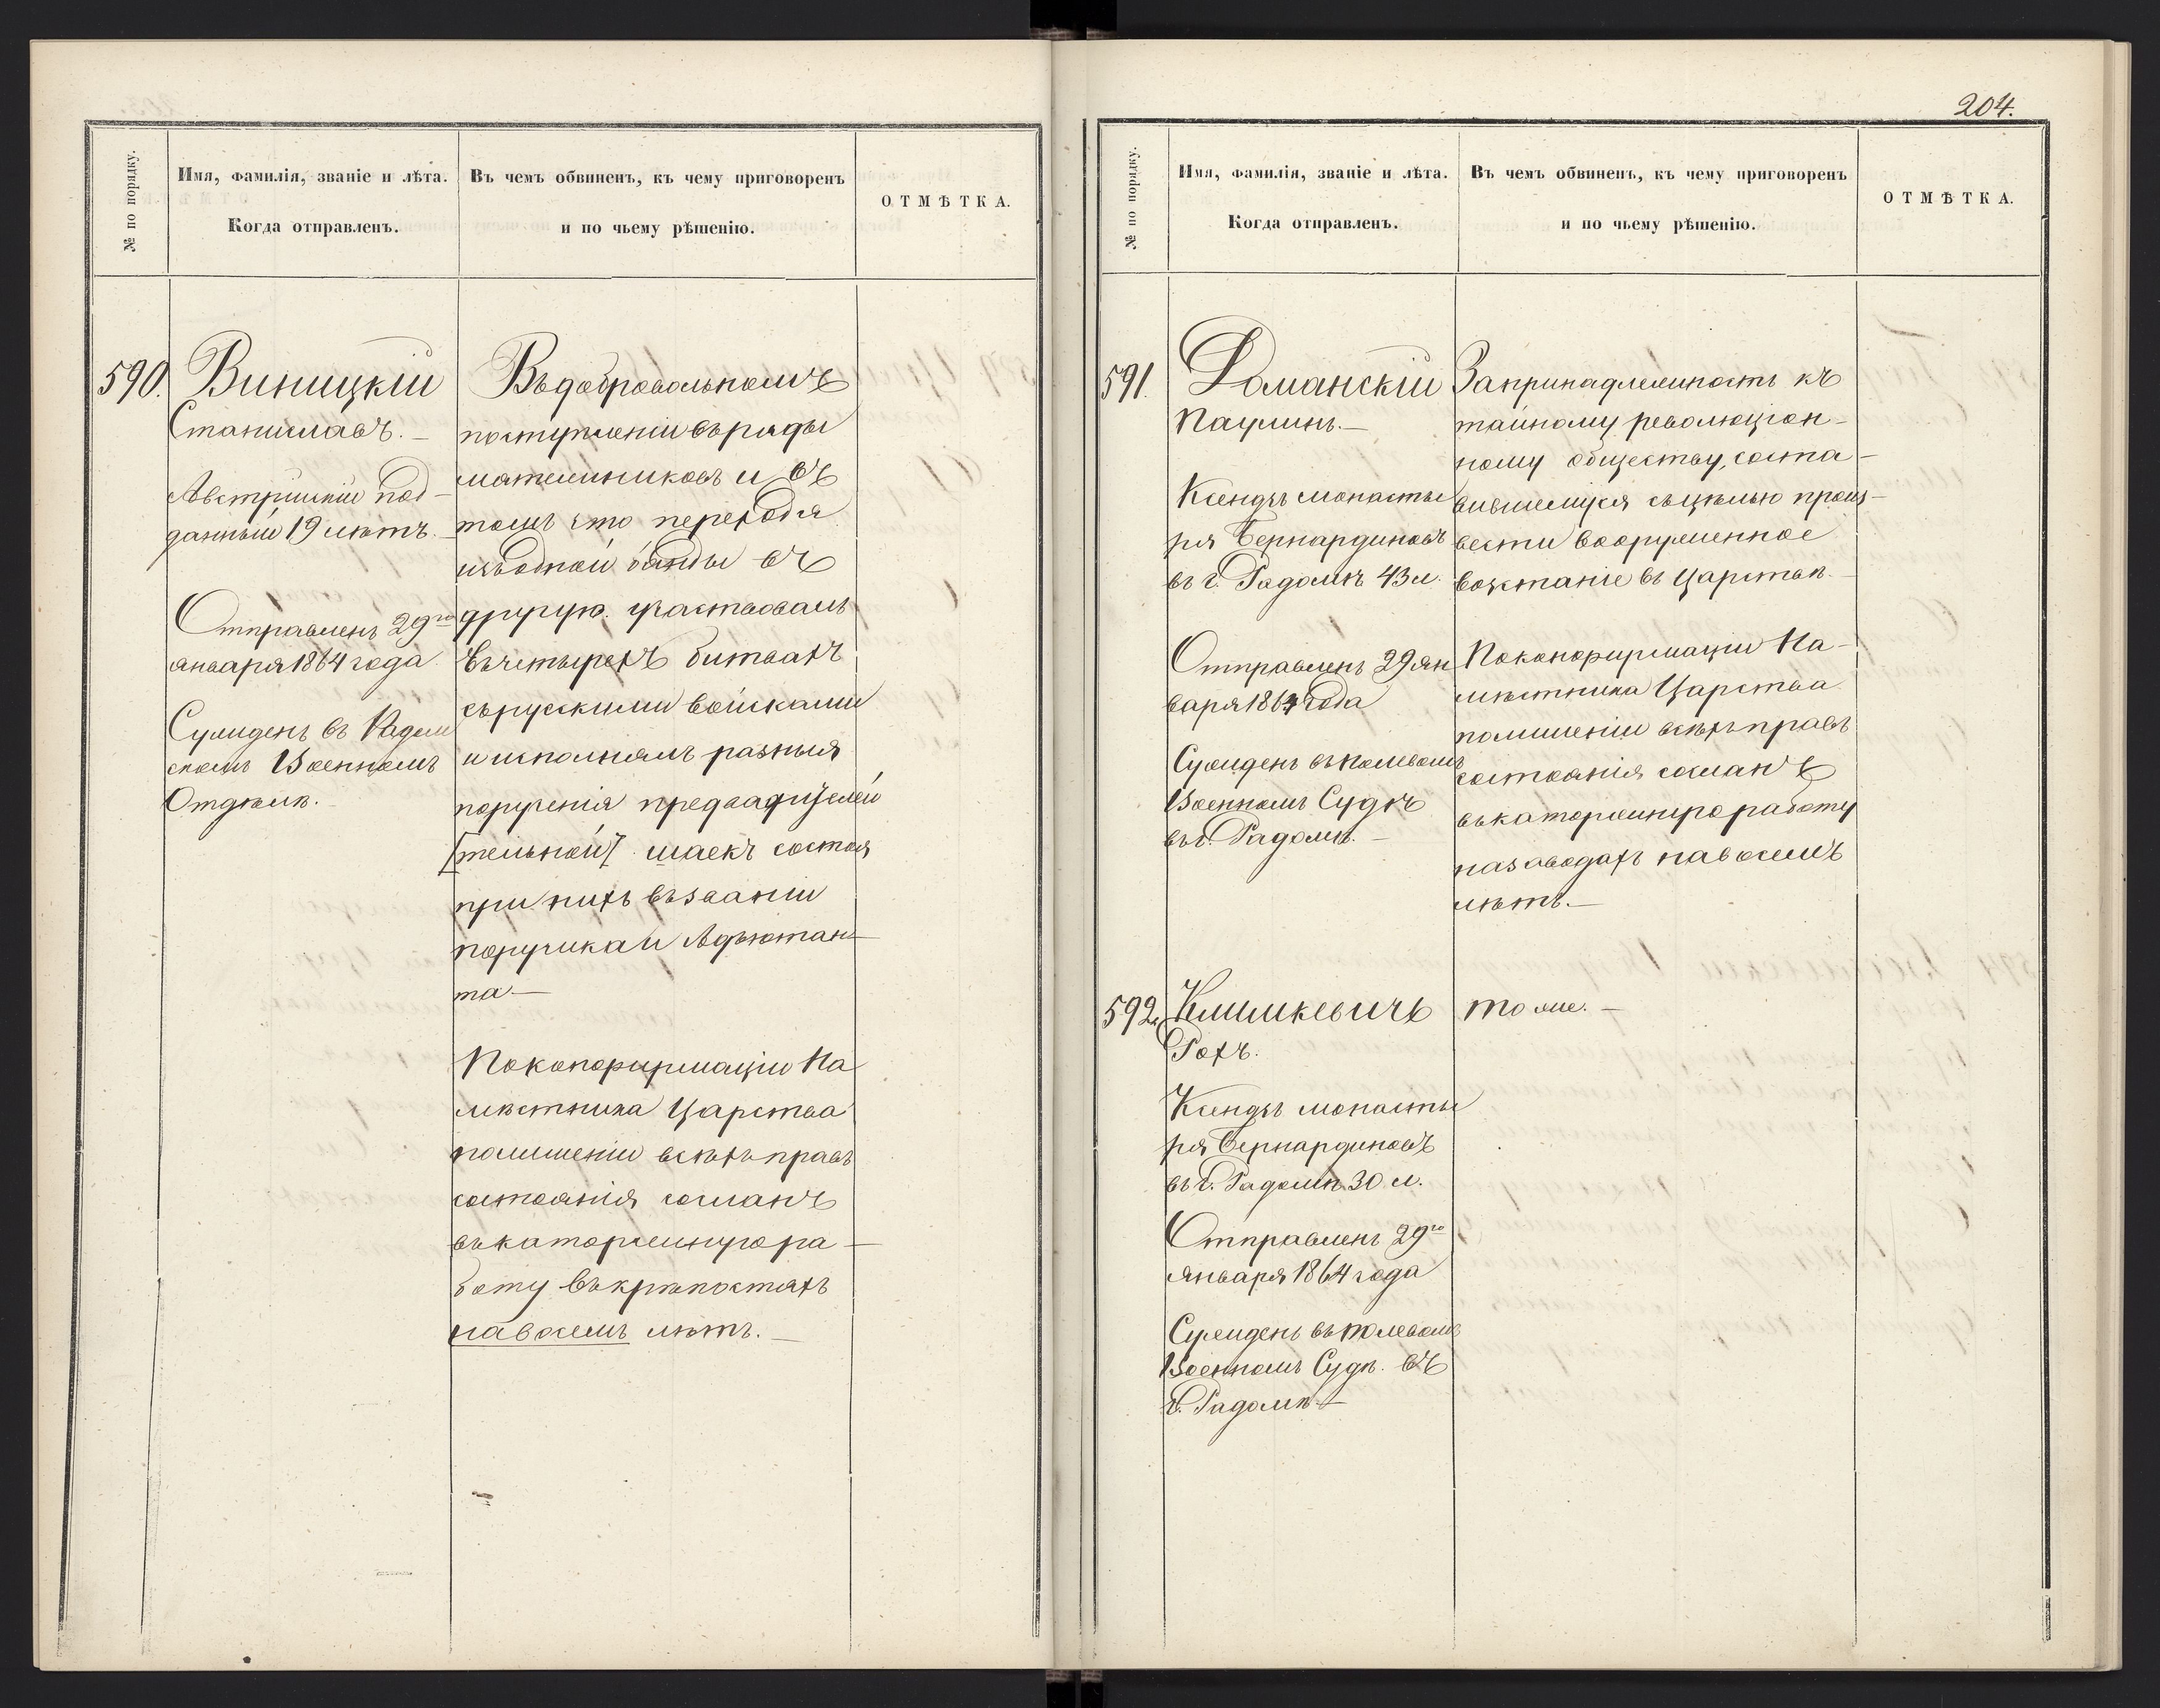 № по порядку.
Имя, фамилія, званіе и лѣта.
Когда отправленъ.
Въ чемъ обвиненъ, къ чему приговоренъ
и по чьему рѣшенію.
ОТМѢТКА.
590.
Виницкій
Станиславъ. —
Австрійскій под-
данный 19 лѣтъ. —
Отправленъ 29го
января 1864 года
Сужденъ въ Радом
скомъ Военномъ
Отдѣлѣ.
Въ добровольномъ
поступленіи въ ряды
мятежниковъ и въ
томъ что переходя
изъ одной банды въ
другую участвовалъ
въ четырехъ битвахъ
съ русскими войсками
и исполнялъ разныя
порученія предводителей
[тельной] шаекъ состоя
при нихъ въ званіи
поручика и Адъютан-
та —
По конфирмаціи На
мѣстника Царства
по лишеніи всѣхъ правъ
состоянія сосланъ
въ каторжную ра —
боту въ крѣпостяхъ
на восемь лѣтъ. —
204.
№ по порядку.
Имя, фамилія, званіе и лѣта.
Когда отправленъ.
Въ чемъ обвиненъ, къ чему приговоренъ
и по чьему рѣшенію.
ОТМѢТКА.
591.
Доманскій
Паулинъ. —
Ксендзъ монасты
ря Бернардиновъ
въ г. Радомѣ 43 л.
Отправленъ 29 ян
варя 1864 года
Сужденъ въ полевомъ
Военномъ Судѣ
въ г. Радомѣ. —
За принадлежность къ
тайному революціон-
ному обществу, соста-
вившемуся съ цѣлью произ-
вести вооруженное
возстаніе въ Царствѣ. —
По конфирмаціи На-
мѣстника Царства
по лишеніи всѣхъ правъ
состоянія сосланъ
въ каторжную работу
на заводахъ на восемь
лѣтъ. —
592.
Климкевичъ
Рохъ.
Ксендзъ монасты
ря Бернардиновъ
въ г. Радомѣ 30 л.
Отправленъ 29го
января 1864 года
Сужденъ въ полевомъ
Военномъ Судѣ въ
г. Радомѣ —
тоже. —